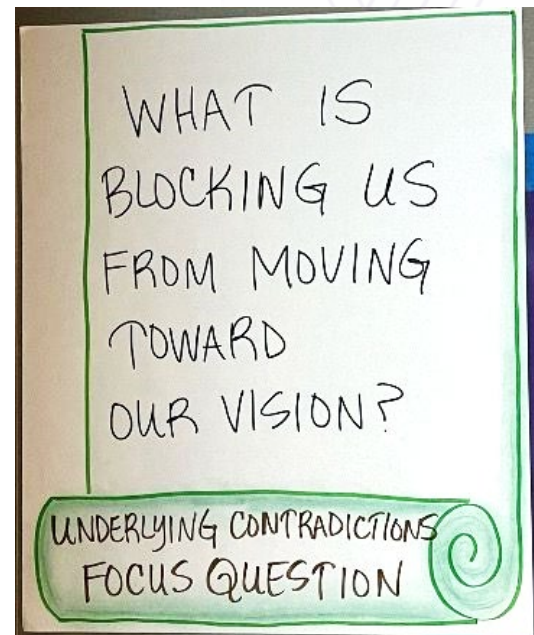 WHAT IS
BLOCKING US
FROM MOVING
TOWARD
OUR VISION?
UNDERLYING CONTRADICTIONS
FOCUS QUESTION